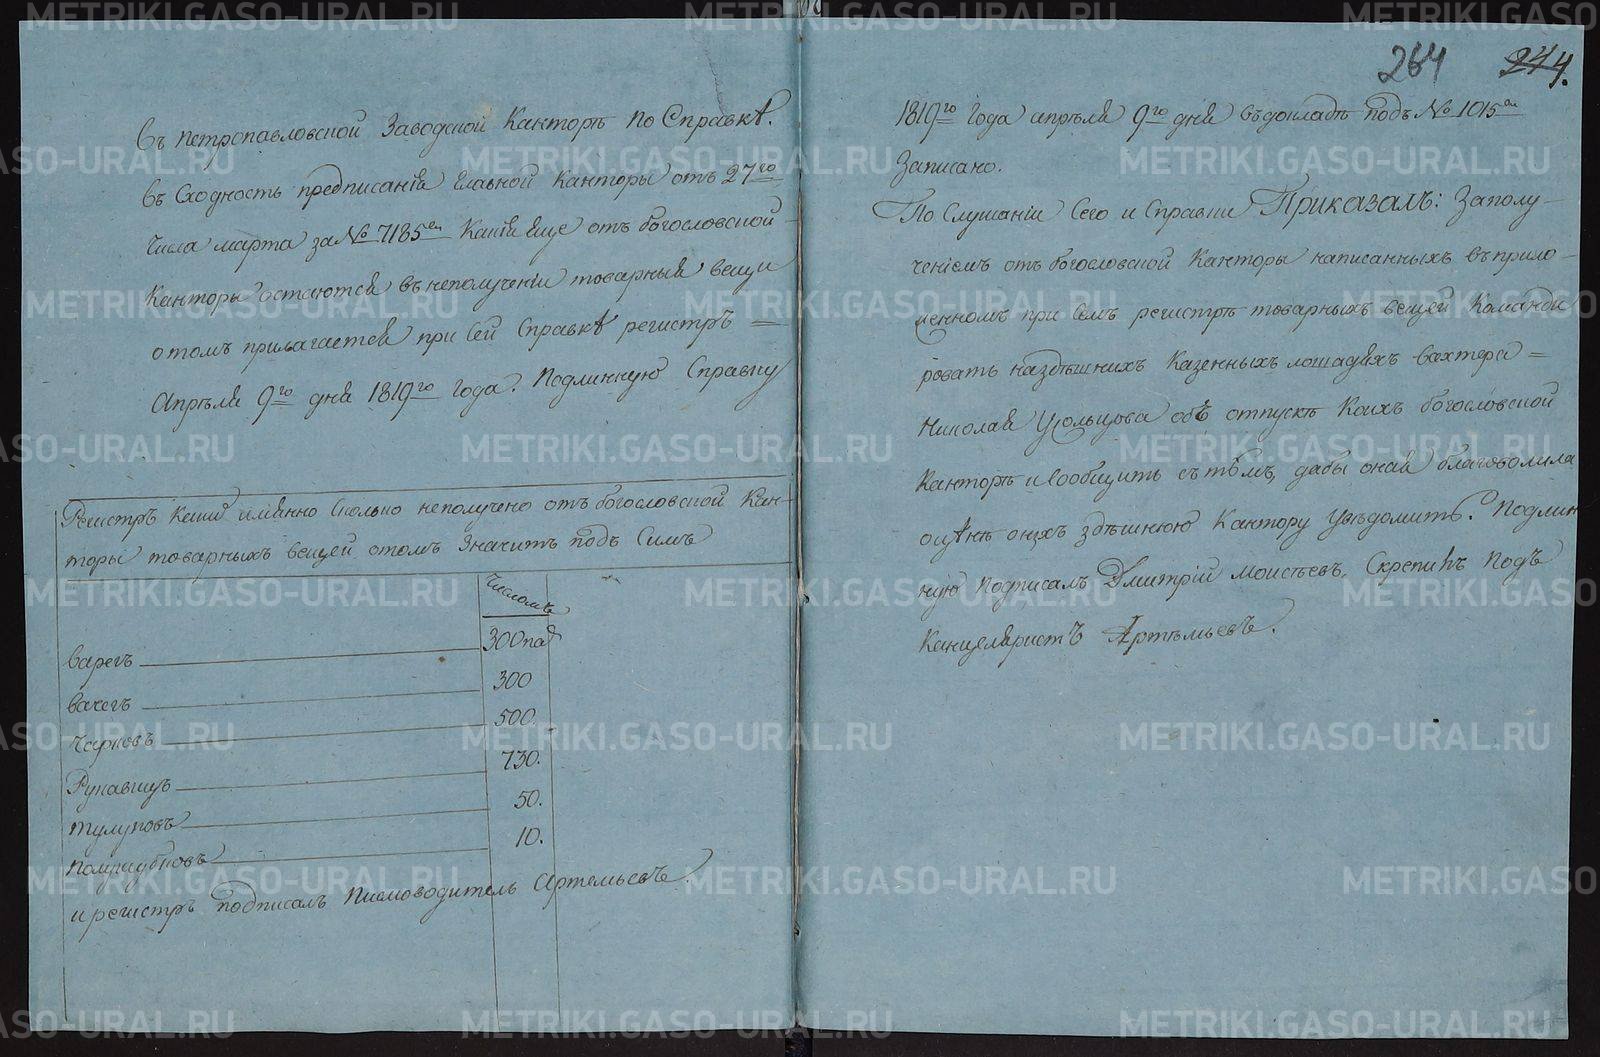 Въ петропавловской Заводской Канторѣ по Справкѣ.
въ Сходность предписанія Главной Канторы отъ 27го
числа марта за № 7185ем Какія еще отъ богословской
Канторы остаются въ неполученіи товарныя вещи
о томъ прилагается при сей Справкѣ регистръ =
Апрѣля 9го дня 1819го года. Подлинную Справку
Регистръ Какия имянно Сколько неполучено отъ богословской Кан-
торы товарныхъ вещей отомъ Значитъ подъ Симъ
Числомъ
варегъ 300 па
вачегъ 300
Чарковъ 500.
Рукавицъ 730.
тулуповъ 50.
полушубковъ 10.
и регистръ подписалъ Писмоводитель Артемьевъ.
264 244.
1819го года апрѣля 9го дня въ докладѣ подъ № 1015ем
Записано.
По Слушаніи Сего и Справки Приказалъ: За полу-
ченіемъ отъ богословской Канторы написанныхъ въ прило-
женномъ при семъ регистрѣ товарныхъ вещей Команди
ровать на здѣшнихъ Казенныхъ лошадяхъ вахтера =
Николая Усольцова объ отпускѣ Коихъ богословской
Канторѣ и Сообщить съ тѣмъ, дабы оная благоволила
о цѣнѣ оныхъ здѣшнюю Кантору Увѣдомить. Подлин
ную подписалъ Дмитрій Моисѣевъ. Скрепилъ Подъ
Канцеляристъ Артѣмьевъ.
METRIKI.GASO-URAL.RU